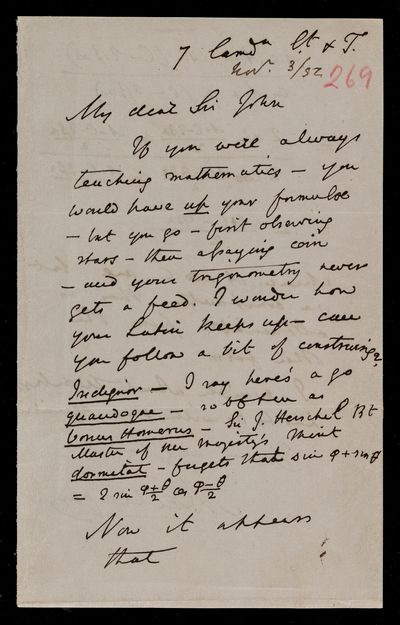 7 Camdn St & T.
Novr. 3/52
269
My dear Sir John
If you were always
teaching mathematics — you
would have up your formulae
— but you go — first observing
stars — then assaying coin
— and your trigonometry never
gets a feed. I wonder how
your Latin keeps up — can
you follow a bit of construing?
Indignor — I say here's a go
quandoque — so often as
bonus Homerus — Sir J. Herschel Bt
Master of Her Majesty's Mint
dormitat — forgets that sin φ + sin θ
= 2 sin φ+θ/2 cos φ−θ/2
Now it appears
that